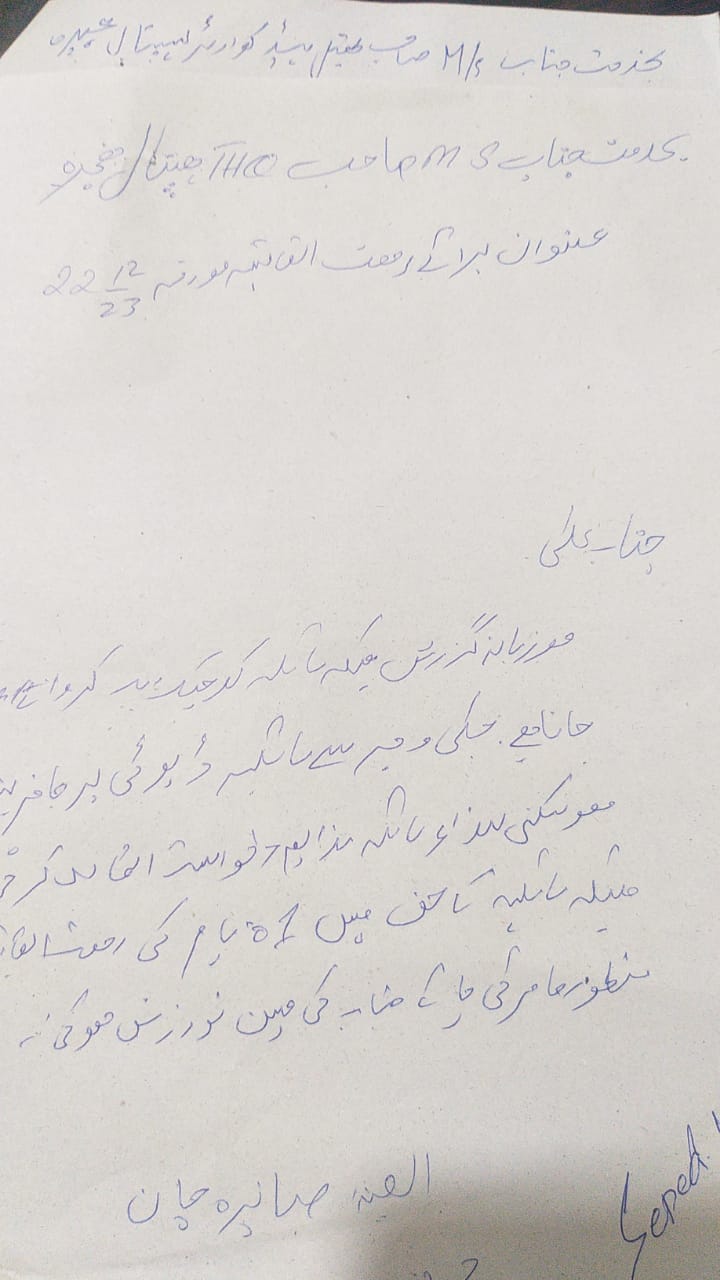 بخدمت جناب M/s صاحب تحصیل ہیڈ کوارٹر ہسپتال
بخدمت جناب M S صاحب THQ ہسپتال
عنوان برائے رخصت اتفاقیہ مورخہ 22 12/23
جناب عالی
مودبانہ گزارش ہیکہ سائلہ کو چیک اپ کروانے
جانا ہے۔ جسکی وجہ سے سائلہ ڈیوٹی پر حاضر نہیں
ہوسکتی لہذا سائلہ بذریعہ درخواست التماس کرتی
ہیکہ سائلہ کے حق میں 01 یوم کی رخصت اتفاقیہ
منظور فرمائی جائے جناب کی عین نوازش ہوگی۔
العبد صائرہ جان